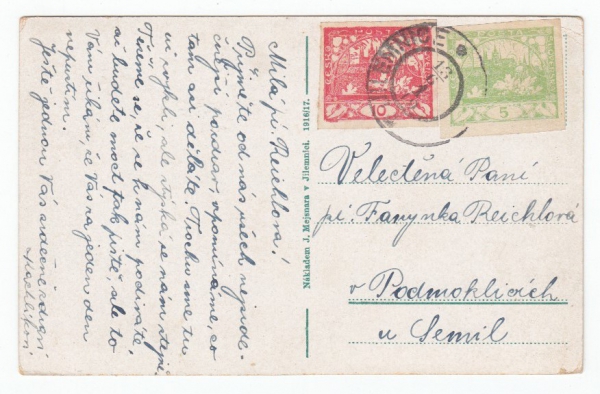 Milá pí. Reichlová!
Přijměte od nás všech nejsrde-
čnější pozdrav, vzpomínáme, co
tam asi děláte. Trochu sme tu
už zvykli, ale stýská se nám
Těšíme se, že se k nám podíváte,
až budete moct tak pište, ale to
Vám říkám, že Vás za jeden den
nepustím.
Ještě jednou Vás srdečně zdraví
Nákladem J. Mejsnara v Jilemnici. 1916/17.
POŠTA
5
12
Velectěná Paní
pí. Fanynka Reichlová
v Podmoklicích
u Semil